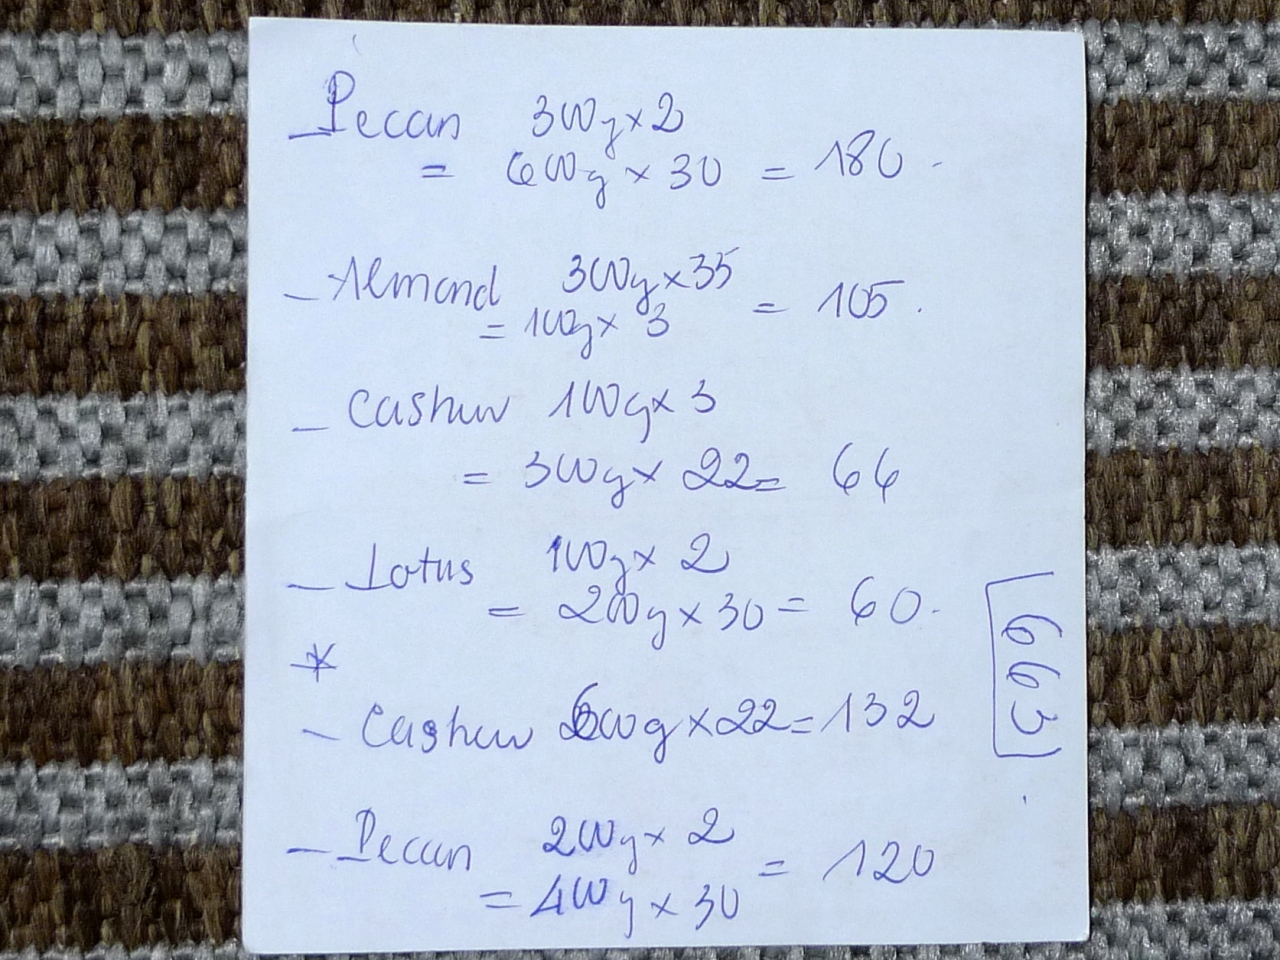 - Pecan 300g x 2
= 600g x 30 = 180.
- Almond 300g x 35
= 100g x 3 = 105.
- Cashew 100g x 3
= 300g x 22 = 66
- Lotus 100g x 2
= 200g x 30 = 60.
*
- Cashew 600g x 22 = 132
- Pecan 200g x 2
= 400g x 30 = 120
663